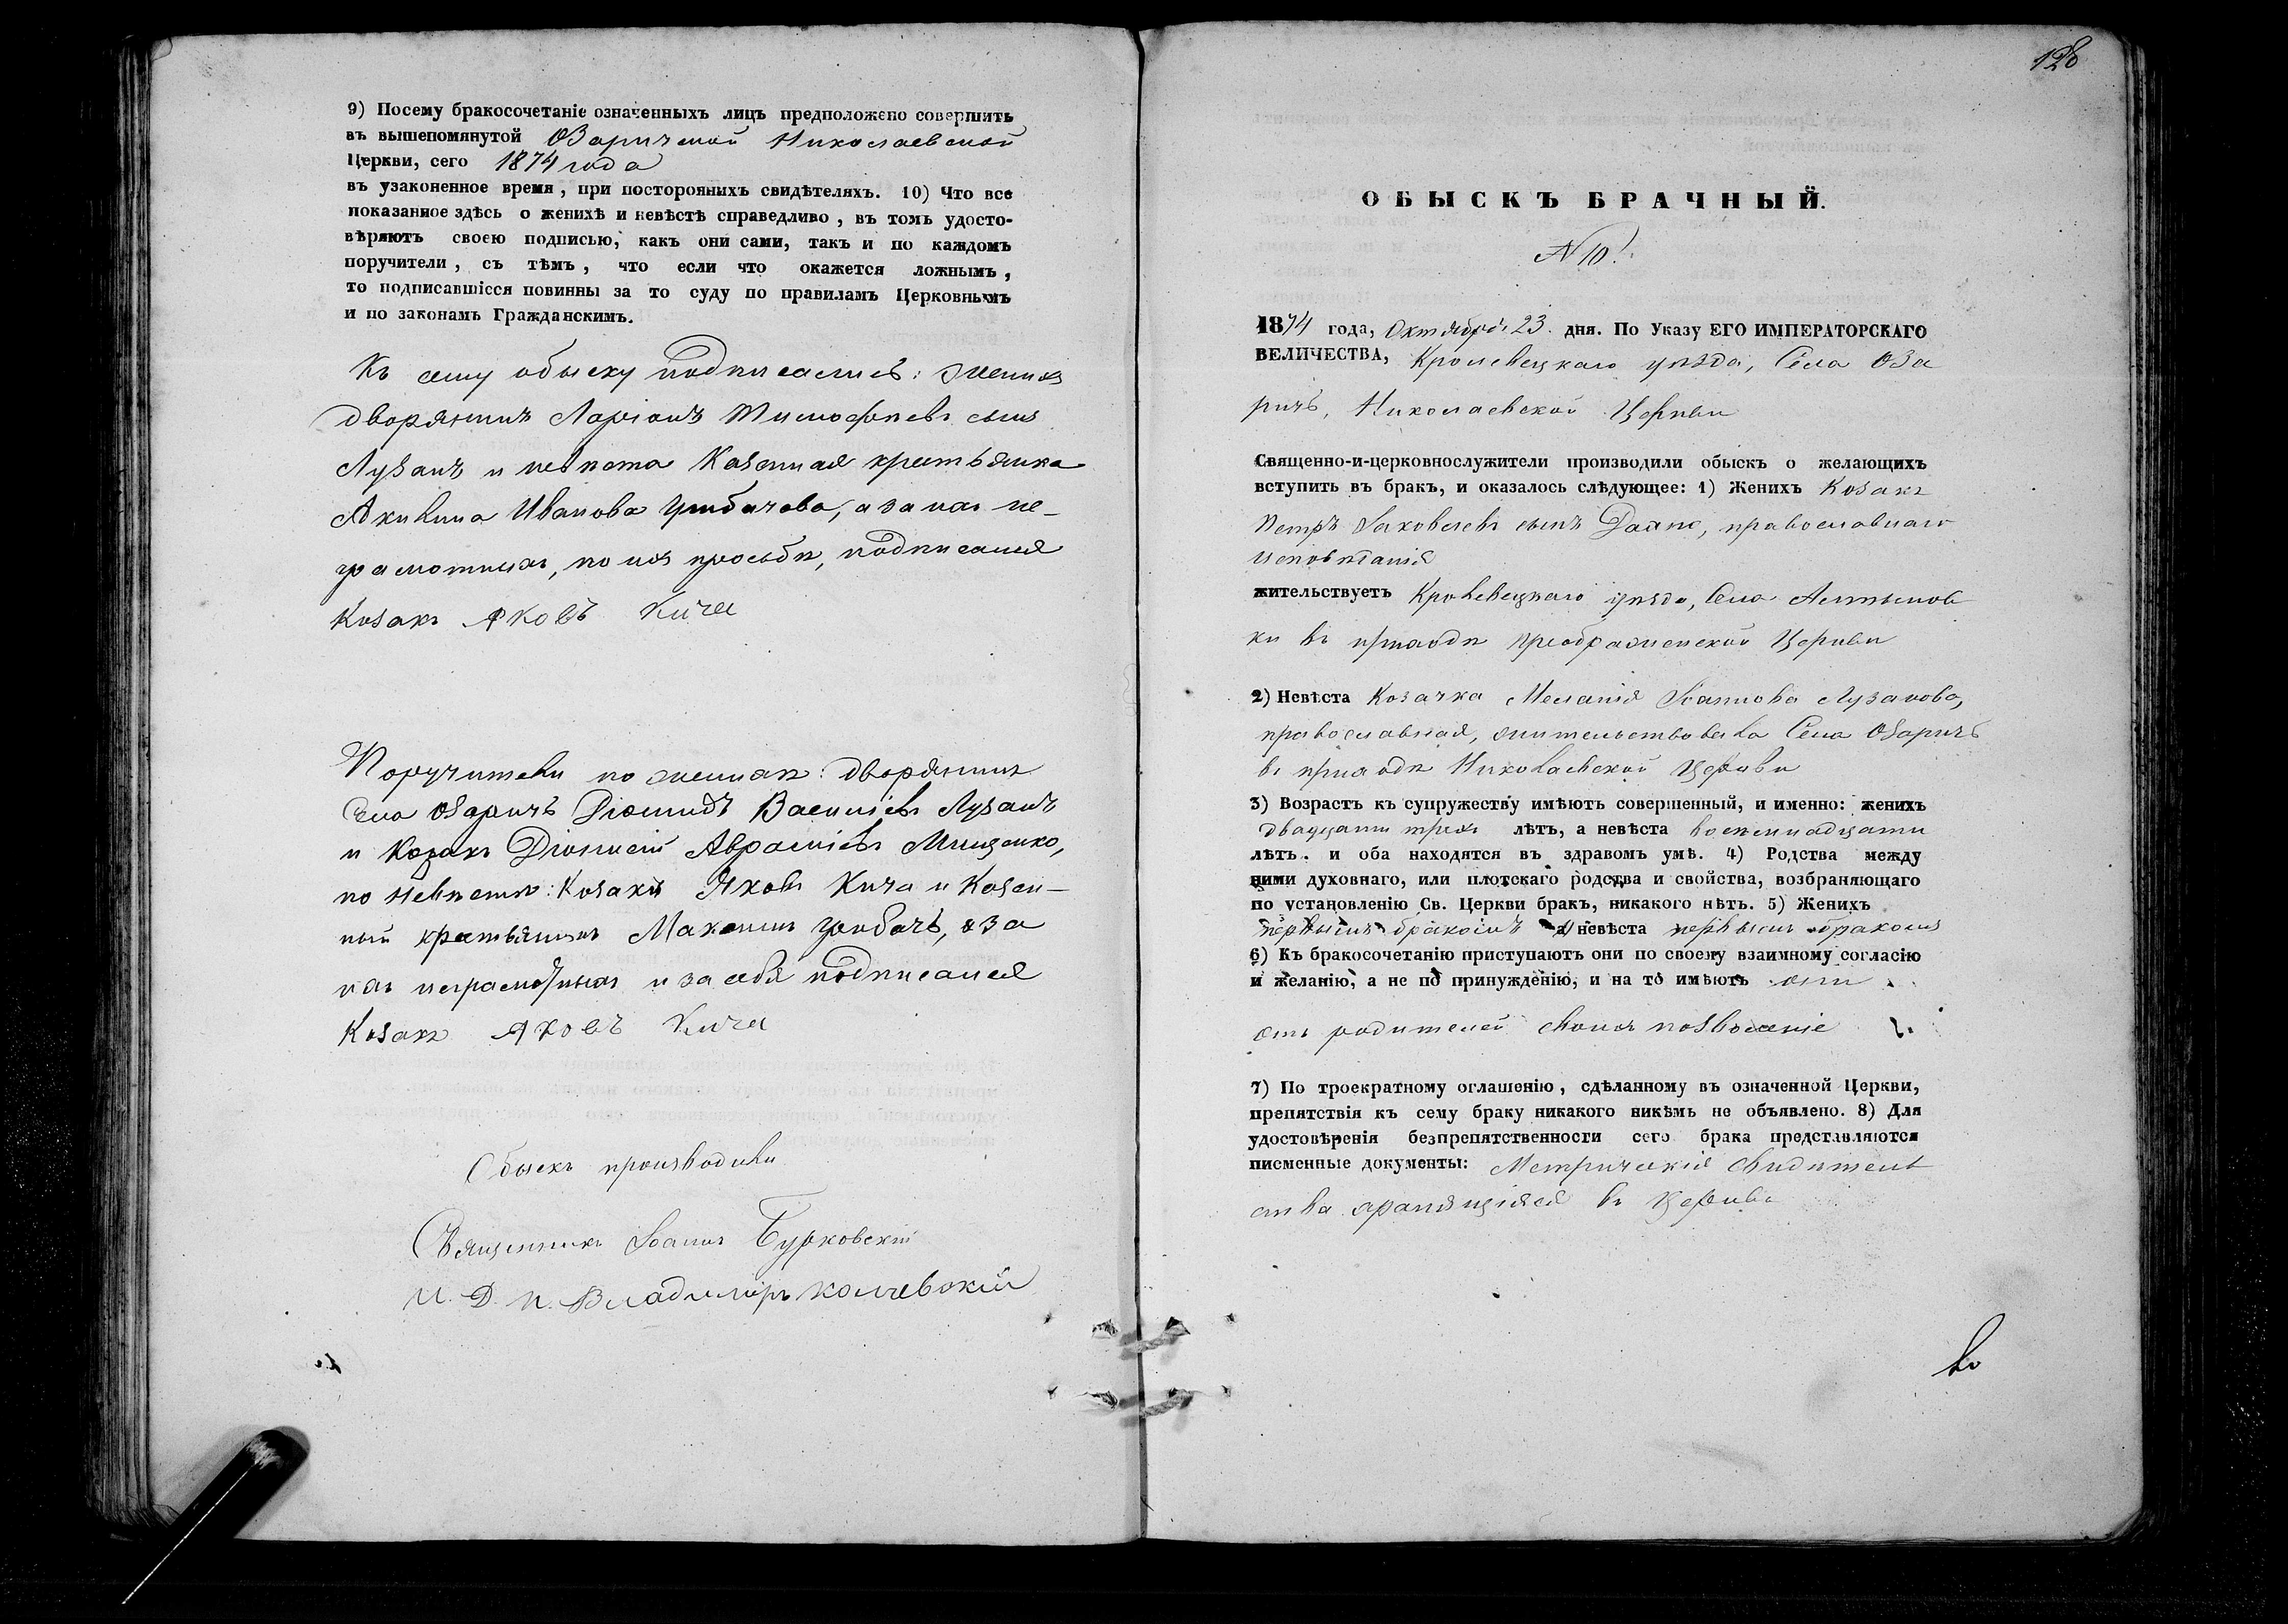 9) Посему бракосочетаніе означенныхъ лицъ предположено совершить
въ вышепомянутой Озаричской Николаевской
Церкви, сего 1874 года
въ узаконенное время, при постороннихъ свидѣтеляхъ. 10) Что все
показанное здѣсь о женихѣ и невѣстѣ справедливо, въ томъ удосто-
вѣряютъ своею подписью, какъ они сами, такъ и по каждомъ
поручители, съ тѣмъ, что если что окажется ложнымъ,
то подписавшіеся повинны за то суду по правиламъ Церковнымъ
и по законамъ Гражданскимъ.
Къ сему обыску подписались: женихъ
дворянинъ Ларіонъ Тимофѣевъ сынъ
Лузанъ и невѣста Казенная крестьянка
Акилина Иванова Грибачова, а за нихъ не-
грамотныхъ, по ихъ просьбѣ, подписался
Козакъ Яковъ Кича
Поручители по женихѣ: дворянинъ
села Озаричъ Діомидъ Василіевъ Лузанъ
и Козакъ Діонисій Авраміевъ Мищенко,
по невѣстѣ: Козакъ Яковъ Кича и Казен-
ный крестьянинъ Максимъ Грибачъ, а за
нихъ неграмотныхъ и за себя подписался
Козакъ Яковъ Кича
Обыскъ производили
Священникъ Іоаннъ Бурковскій
И. Д. П. Владиміръ
128
ОБЫСКЪ БРАЧНЫЙ.
N 10.
1874 года, Октября 23 дня. По Указу ЕГО ИМПЕРАТОРСКАГО
ВЕЛИЧЕСТВА, Кролевецкаго уѣзда, Села Оза
ричъ, Николаевской Церкви
Священно-и-церковнослужители производили обыскъ о желающихъ
вступить въ бракъ, и оказалось слѣдующее: 1) Женихъ Козакъ
Петръ Іаковлевъ сынъ православнаго
исповѣданія
жительствуетъ Кролевецкаго уѣзда, Села Алтынов
ки въ приходѣ Преображенской Церкви
2) Невѣста Козачка Меланія Іоаннова Лузанова,
православная, жительствовала Села Озаричъ
въ приходѣ Николаевской Церкви
3) Возрастъ къ супружеству имѣютъ совершенный, и именно: женихъ
двадцати трехъ лѣтъ, а невѣста восемнадцати
лѣтъ. и оба находятся въ здравомъ умѣ. 4) Родства между
ними духовнаго, или плотскаго родства и свойства, возбраняющаго
по установленію Св. Церкви бракъ, никакого нѣтъ. 5) Женихъ
первымъ бракомъ а невѣста первымъ бракомъ
6) Къ бракосочетанію приступаютъ они по своему взаимному согласію
и желанію, а не по принужденію, и на то имѣютъ они
отъ родителей своихъ позволеніе
7) По троекратному оглашенію, сдѣланному въ означенной Церкви,
препятствія къ сему браку никакого никѣмъ не объявлено. 8) Для
удостовѣренія безпрепятственности сего брака представляются
писменные документы: Метрическія свидѣтель
ства хранящіяся въ Церкви
во